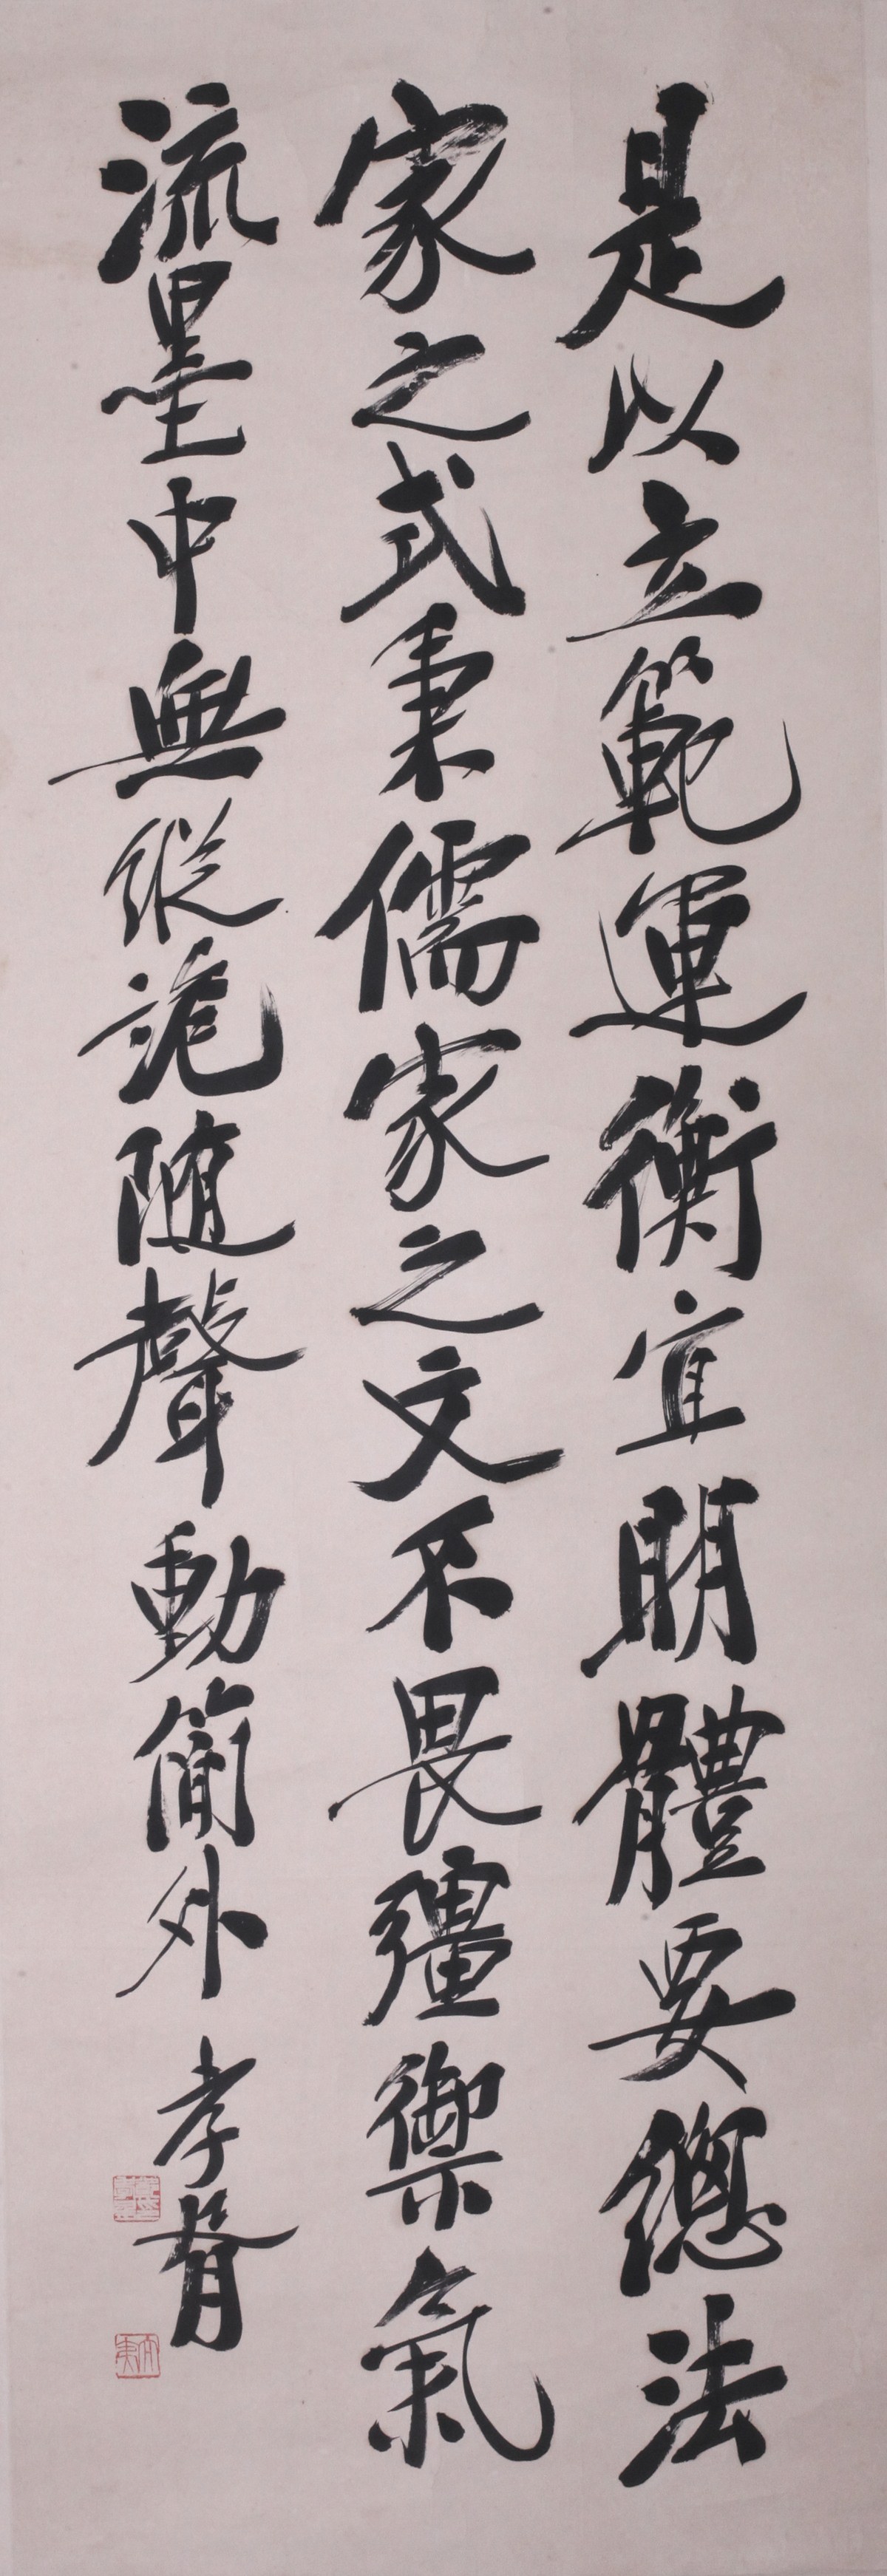 是以立範運衡宜明體要緫法
家之式秉儒家之文不畏彊禦氣
流墨中無縱詭隨聲動簡外
孝胥